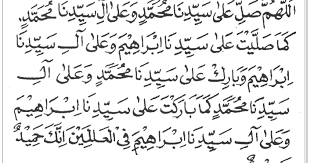 اَللّٰهُمَّ صَلِّ عَلٰى سَيِّدِنَا مُحَمَّدٍ وَعَلٰى اٰلِ سَيِّدِنَا مُحَمَّدٍ
كَمَا صَلَّيْتَ عَلٰى سَيِّدِنَا اِبْرَاهِيْمَ وَعَلٰى اٰلِ سَيِّدِنَا
اِبْرَاهِيْمَ وَبَارِكْ عَلٰى سَيِّدِنَا مُحَمَّدٍ وَعَلٰى اٰلِ
سَيِّدِنَا مُحَمَّدٍ كَمَا بَارَكْتَ عَلٰى سَيِّدِنَا اِبْرَاهِيْمَ
وَعَلٰى اٰلِ سَيِّدِنَا اِبْرَاهِيْمَ فِى الْعَالَمِيْنَ اِنَّكَ حَمِيْدٌ